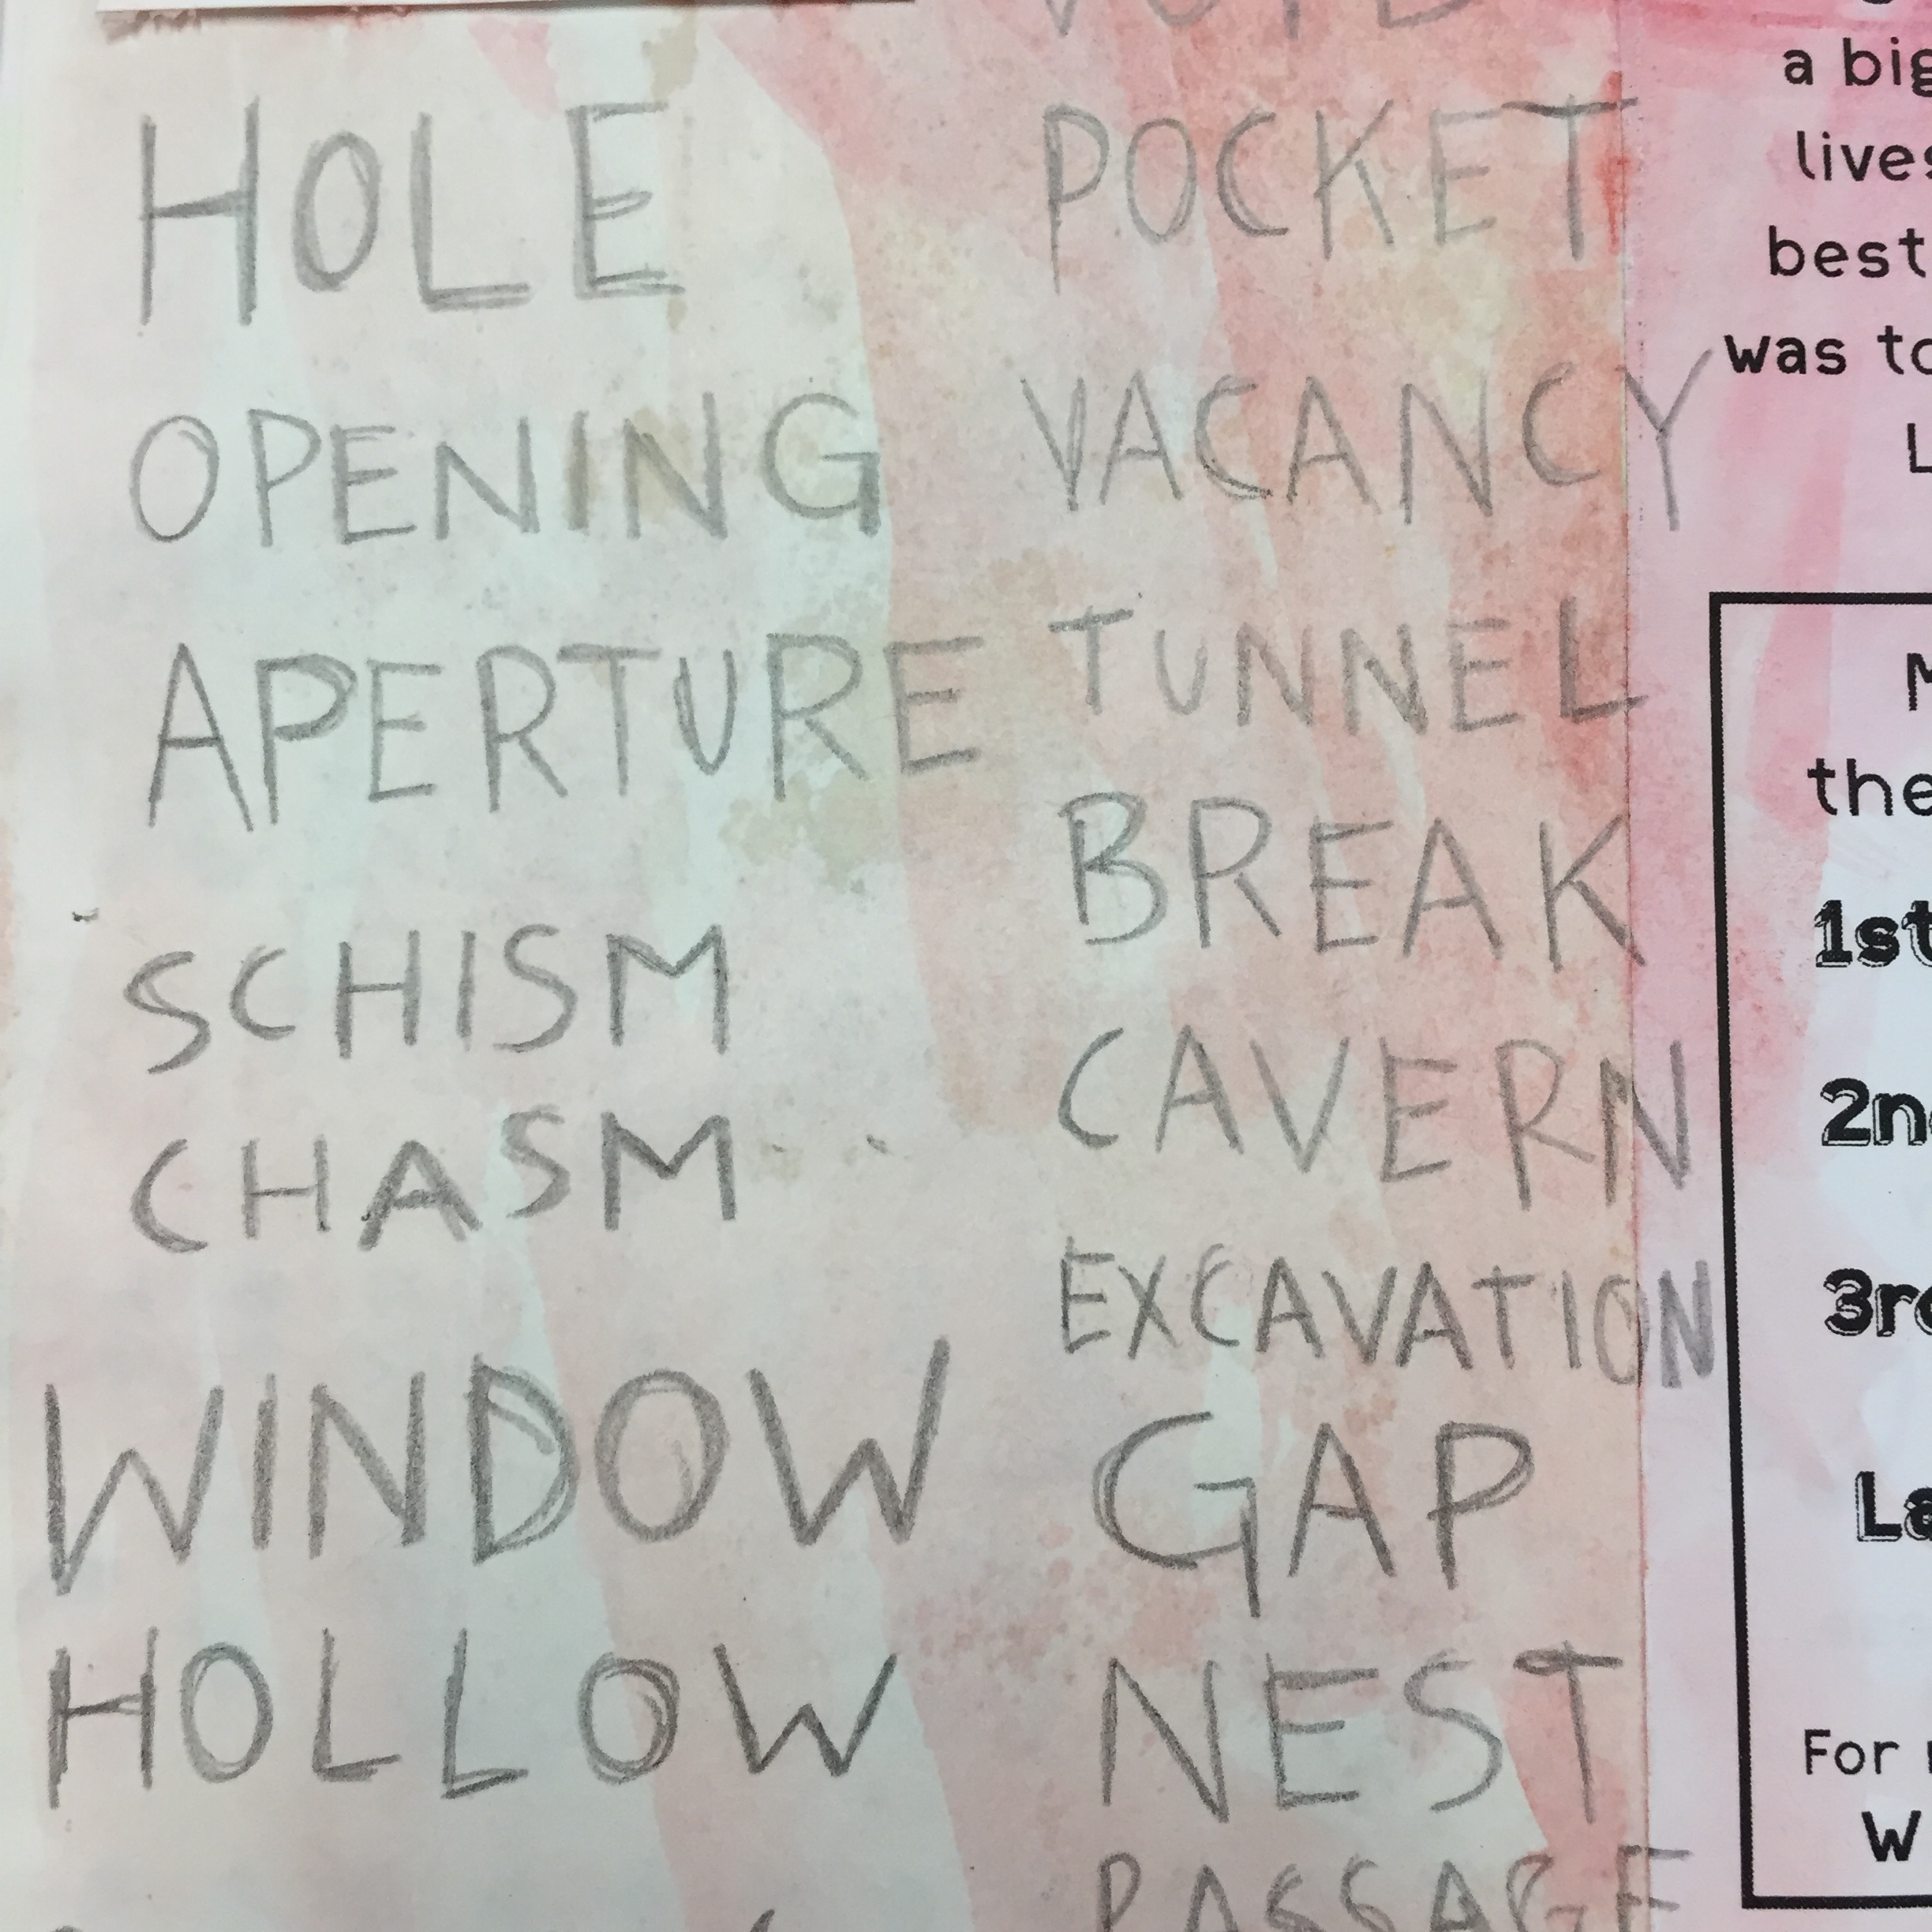 HOLE
OPENING
APERTURE
SCHISM
CHASM
WINDOW
HOLLOW
VOID
POCKET
VACANCY
TUNNEL
BREAK
CAVERN
EXCAVATION
GAP
NEST
PASSAGE
a big
lives
best
was to
L
M
the
1st
2nd
3rd
La
For
W